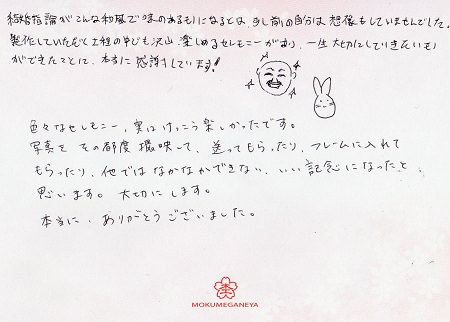 結婚指論がこんな和風で味のあるものになるとは、少し前の自分は想像もしていませんでした。
製作していただく工程の中でも沢山楽しめるセレモニーがあり、一生大切にしていきたいもの
ができたことに、本当に感謝しています！
色々なセレモニー、実はけっこう楽しかったです。
写真を その都度 撮映して、送ってもらったり、フレームに入れて
もらったり、他ではなかなかできない、いい記念になったと
思います。大切にします。
本当に、ありがとうございました。
MOKUMEGANEYA